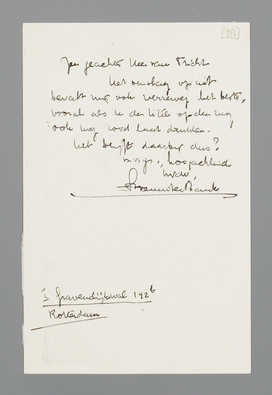 [28]
Zeer geachte Heer van Tricht
Het omslag op wit
bevalt mij ook verreweg het beste,
vooral als u de titel op den rug
ook nog rood laat drukken.
Het blijft daarbij dus?
hoogachtend
's Gravendijkwal 142b
Rotterdam